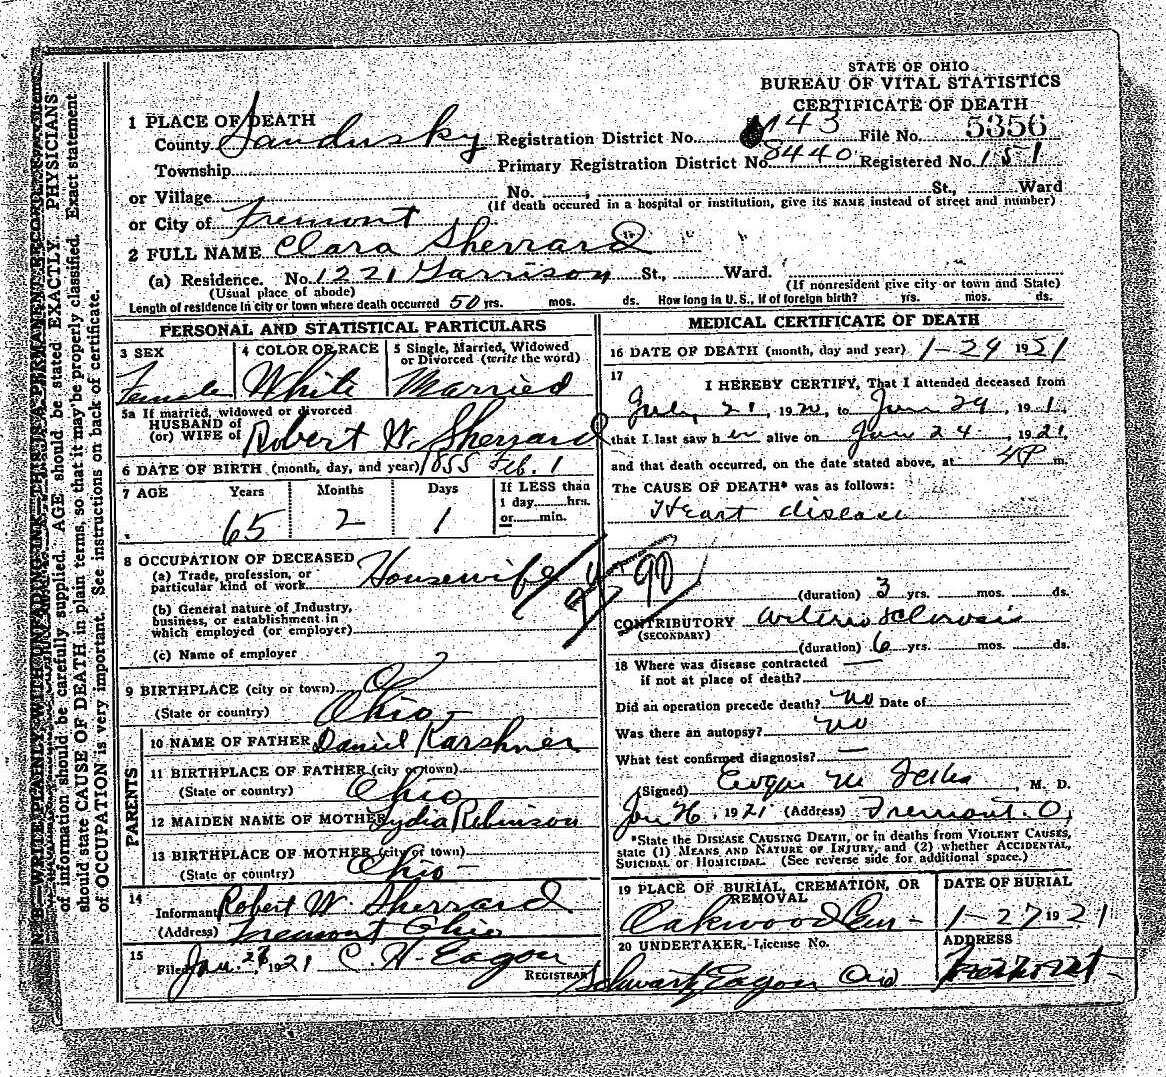 STATE OF OHIO
BUREAU OF VITAL STATISTICS
CERTIFICATE OF DEATH
1 PLACE OF DEATH
County Sandusky Registration District No. 1143 File No. 5356
Township Primary Registration District No. 8440 Registered No. 151
or Village No. St., Ward
(If death occured in a hospital or institution, give its NAME instead of street and number)
or City of Fremont
2 FULL NAME Clara Sherrard
(a) Residence. No. 1221 Garrison St., Ward.
(Usual place of abode) (If nonresident give city or town and State)
Length of residence in city or town where death occurred 50 yrs. mos. ds. How long in U.S., if of foreign birth? yrs. mos. ds.
PERSONAL AND STATISTICAL PARTICULARS
3 SEX
Female
4 COLOR OR RACE
White
5 Single, Married, Widowed
or Divorced (write the word)
Married
5a If married, widowed or divorced
HUSBAND of
(or) WIFE of Robert W. Sherrard
6 DATE OF BIRTH (month, day, and year) 1855 Feb. 1
7 AGE Years Months Days If LESS than
1 day hrs.
or min.
65 2 1
8 OCCUPATION OF DECEASED
(a) Trade, profession, or
particular kind of work Housewife
(b) General nature of Industry,
business, or establishment in
which employed (or employer)
(c) Name of employer
9 BIRTHPLACE (city or town)
(State or country) Ohio
PARENTS
10 NAME OF FATHER Daniel Karshner
11 BIRTHPLACE OF FATHER (city or town)
(State or country) Ohio
12 MAIDEN NAME OF MOTHER Lydia Robinson
13 BIRTHPLACE OF MOTHER (city or town)
(State or country) Ohio
14
Informant Robert W. Sherrard
(Address) Fremont Ohio
15
Filed Jan. 1921 C. H. Eagon
REGISTRAR
MEDICAL CERTIFICATE OF DEATH
16 DATE OF DEATH (month, day and year) 1-24 1921
17
I HEREBY CERTIFY, That I attended deceased from
July 21, 1920, to Jan 24, 191,
that I last saw her alive on Jan 24, 1921,
and that death occurred, on the date stated above, at 4P m.
The CAUSE OF DEATH* was as follows:
Heart disease
90
(duration) 3 yrs. mos. ds.
CONTRIBUTORY Arterio Sclerosis
(SECONDARY)
(duration) 6 yrs. mos. ds.
18 Where was disease contracted
if not at place of death?
Did an operation precede death? no Date of
Was there an autopsy? no
What test confirmed diagnosis?
(Signed) M. D.
Jan 26, 1921 (Address) Fremont. O.
*State the DISEASE CAUSING DEATH, or in deaths from VIOLENT CAUSES,
state (1) MEANS AND NATURE OF INJURY, and (2) whether ACCIDENTAL,
SUICIDAL or HOMICIDAL. (See reverse side for additional space.)
19 PLACE OF BURIAL, CREMATION, OR
REMOVAL
Oakwood Cem -
DATE OF BURIAL
1-27 1921
20 UNDERTAKER, License No.
Eagon
ADDRESS
Fremont
N. B.—WRITE PLAINLY, WITH UNFADING INK—THIS IS A PERMANENT RECORD. Every item
of information should be carefully supplied. AGE should be stated EXACTLY. PHYSICIANS
should state CAUSE OF DEATH in plain terms, so that it may be properly classified. Exact statement
of OCCUPATION is very important. See instructions on back of certificate.